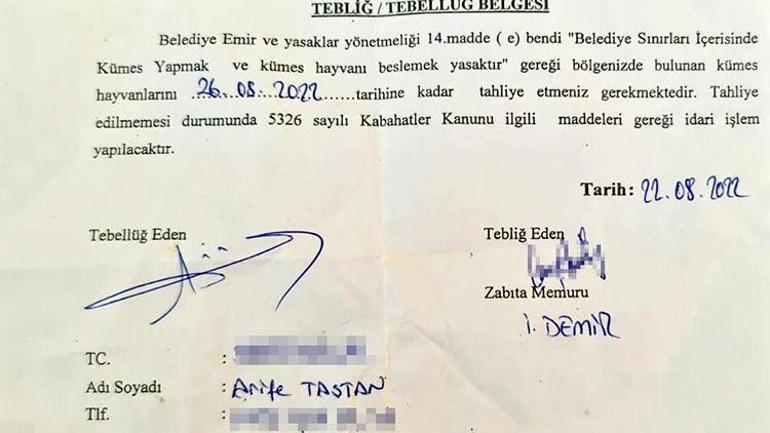 TEBLİĞ / TEBELLÜĞ BELGESİ
Belediye Emir ve yasaklar yönetmeliği 14.madde ( e) bendi "Belediye Sınırları İçerisinde
Kümes Yapmak ve kümes hayvanı beslemek yasaktır" gereği bölgenizde bulunan kümes
hayvanlarını ...26.08.2022......tarihine kadar tahliye etmeniz gerekmektedir. Tahliye
edilmemesi durumunda 5326 sayılı Kabahatler Kanunu ilgili maddeleri gereği idari işlem
yapılacaktır.
Tarih: 22.08.2022
Tebellüğ Eden
Tebliğ Eden
Zabıta Memuru
İ. DEMİR
TC. :
Adı Soyadı : Arife TAŞTAN
Tlf. :